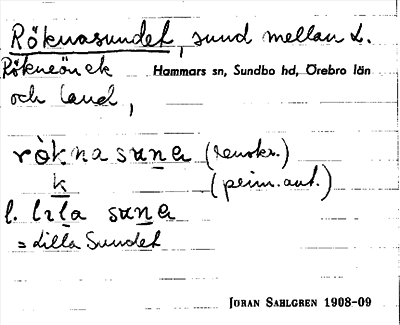 Röknasundet, sund mellan L.
Rökneön ek Hammars sn, Sundbo hd, Örebro län
och land,
ròknasuna (renskr.)
k (prim.ant.)
l. lila suna
= Lilla Sundet
JÖRAN SAHLGREN 1908-09